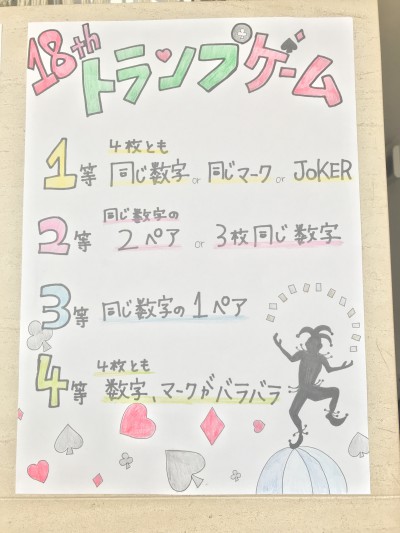 18th
トランプゲーム
1等
4枚とも
同じ数字 or 同じマーク or JOKER
2等
同じ数字の
2ペア or 3枚同じ数字
3等 同じ数字の1ペア
4等
4枚とも
数字、マークがバラバラ